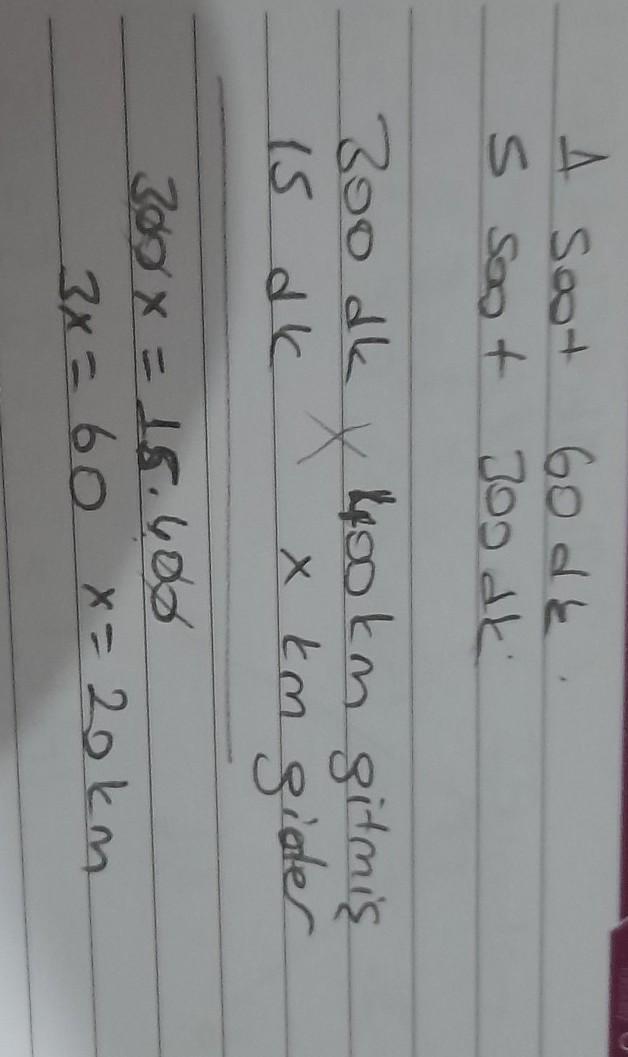 1 saat 60 dk.
5 saat 300 dk.
300 dk 400 km gitmiş
15 dk x km gider
300x = 15.400
3x = 60 x = 20 km